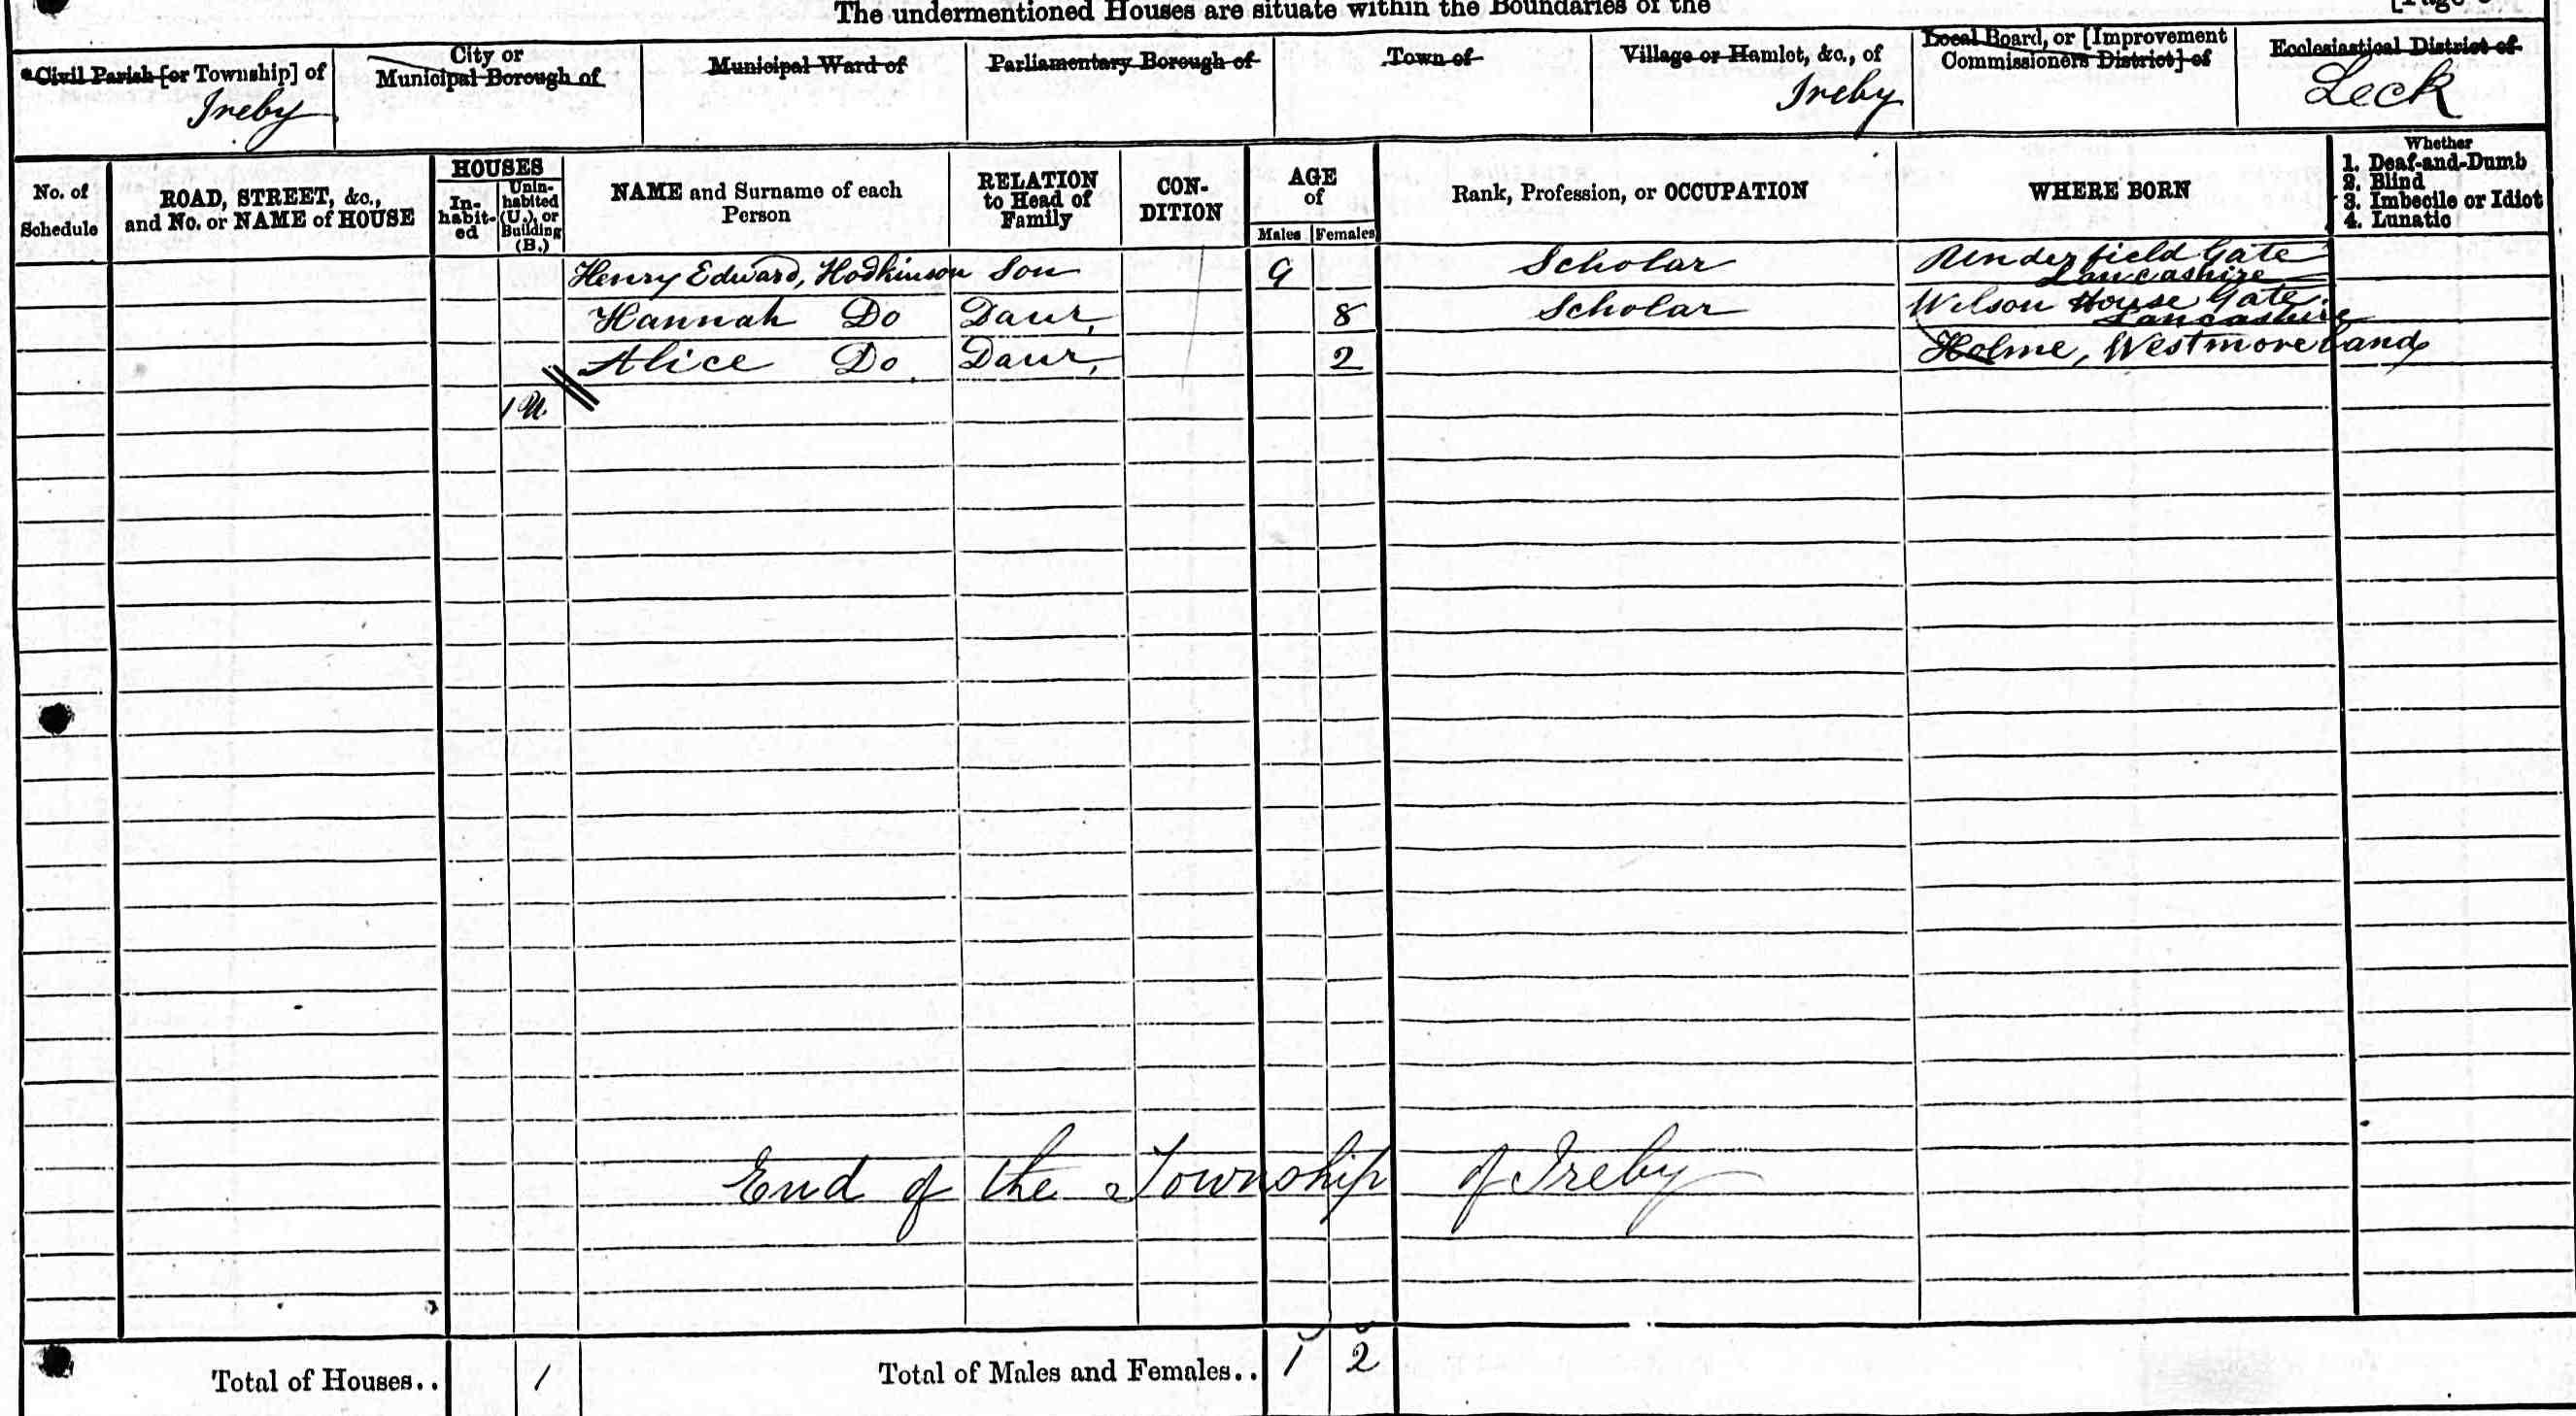 The undermentioned Houses are situate within the Boundaries of the
[Page
Civil Parish [or Township] of
Ireby
City or
Municipal Borough of
Municipal Ward of
Parliamentary Borough of
Town of
Village or Hamlet, &c., of
Ireby
Local Board, or [Improvement
Commissioners District] of
Ecclesiastical District of
Leck
No. of
Schedule
ROAD, STREET, &c.,
and No. or NAME of HOUSE
HOUSES
In-
habit-
ed
Unin-
habited
(U.), or
Building
(B.)
NAME and Surname of each
Person
RELATION
to Head of
Family
CON-
DITION
AGE
of
Males Females
Rank, Profession, or OCCUPATION
WHERE BORN
Whether
1. Deaf-and-Dumb
2. Blind
3. Imbecile or Idiot
4. Lunatic
Henry Edward, Hodkinson Son 9 Scholar field Gate
Lancashire
Hannah Do Daur, 8 Scholar Wilson House Gate
Lancashire
Alice Do Daur, 2 Holme, Westmoreland
1 U.
End of the Township of Ireby
Total of Houses.. 1 Total of Males and Females.. 1 2